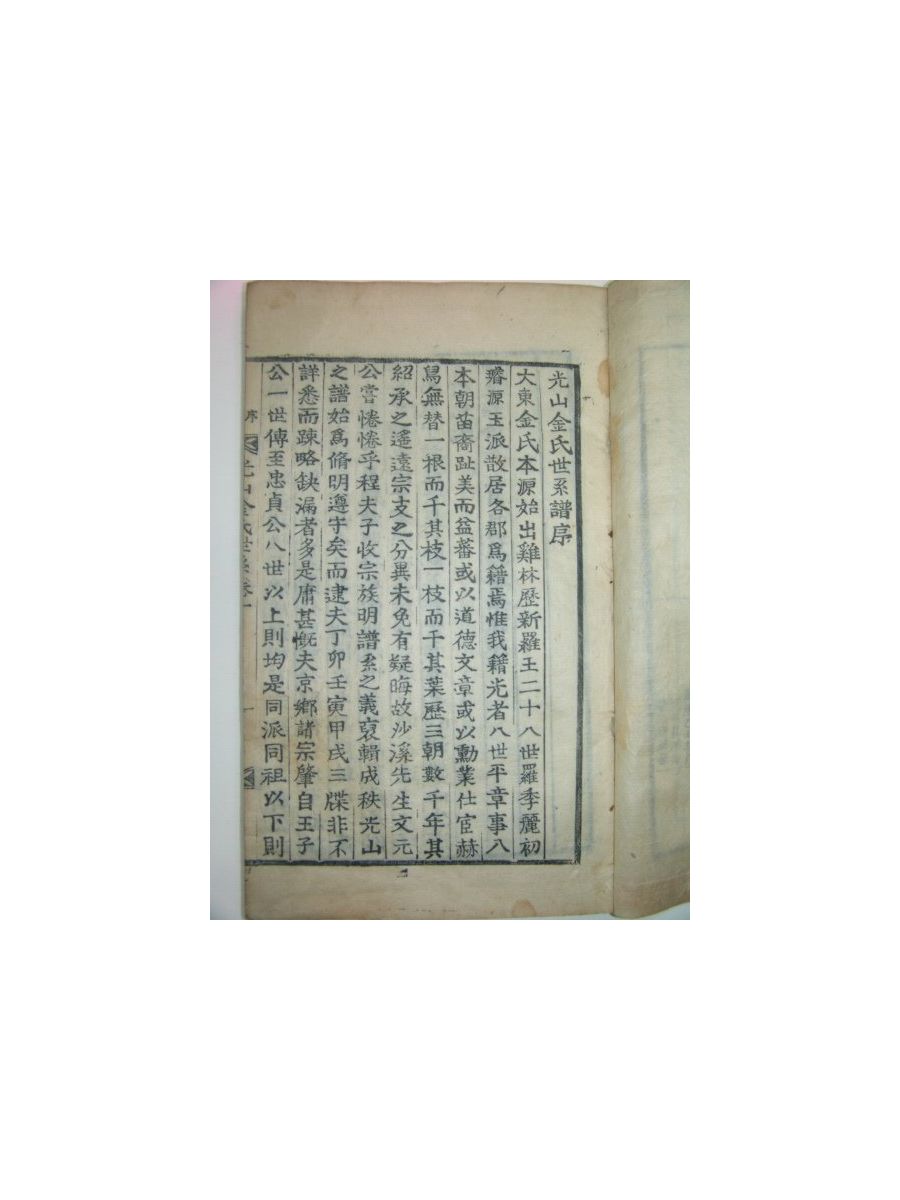 光山金氏世系譜序
大東金氏本源始出雞林歷新羅王二十八世羅季麗初
璿源玉派散居各郡爲籍焉惟我籍光者八世平章事八
本朝苗裔趾美而益蕃或以道德文章或以勳業仕宦赫
舃無替一根而千其枝一枝而千其葉歷三朝數千年其
紹承之遙遠宗支之分異未免有疑晦故沙溪先生文元
公嘗惓惓乎程夫子收宗族明譜系之義裒輯成秩光山
之譜始爲脩明遵守矣而逮夫丁卯壬寅甲戌三牒非不
詳悉而疎略缺漏者多是庸甚慨夫京鄉諸宗肇自王子
公一世傳至忠貞公八世以上則均是同派同祖以下則
序 光山金氏世系卷一 一